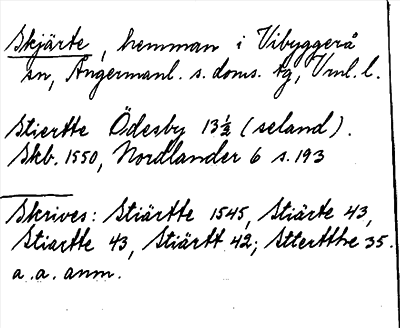 Skjärte, hemman i Vibyggerå
sn, Ångermanl. s. doms. tg, Vnl. l.
Stiertte Ödesby 13½ (seland).
Skb. 1550, Nordlander 6 s. 193
Skrives: Stiärtte 1545, Stiärte 43,
Stiartte 43, Stiärtt 42; Sttertthe 35.
a. a. anm.